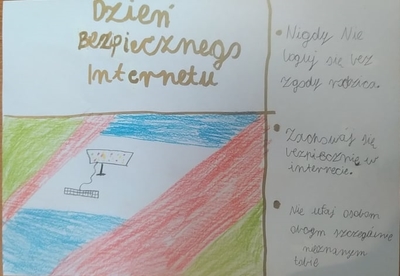 Dzień
Bezpiecznego
Internetu
Nigdy Nie
loguj się bez
zgody rodzica.
Zachowuj się
bezpiecznie w
internecie.
Nie ufaj osobom
obcym szczególnie
nieznanym
tobie